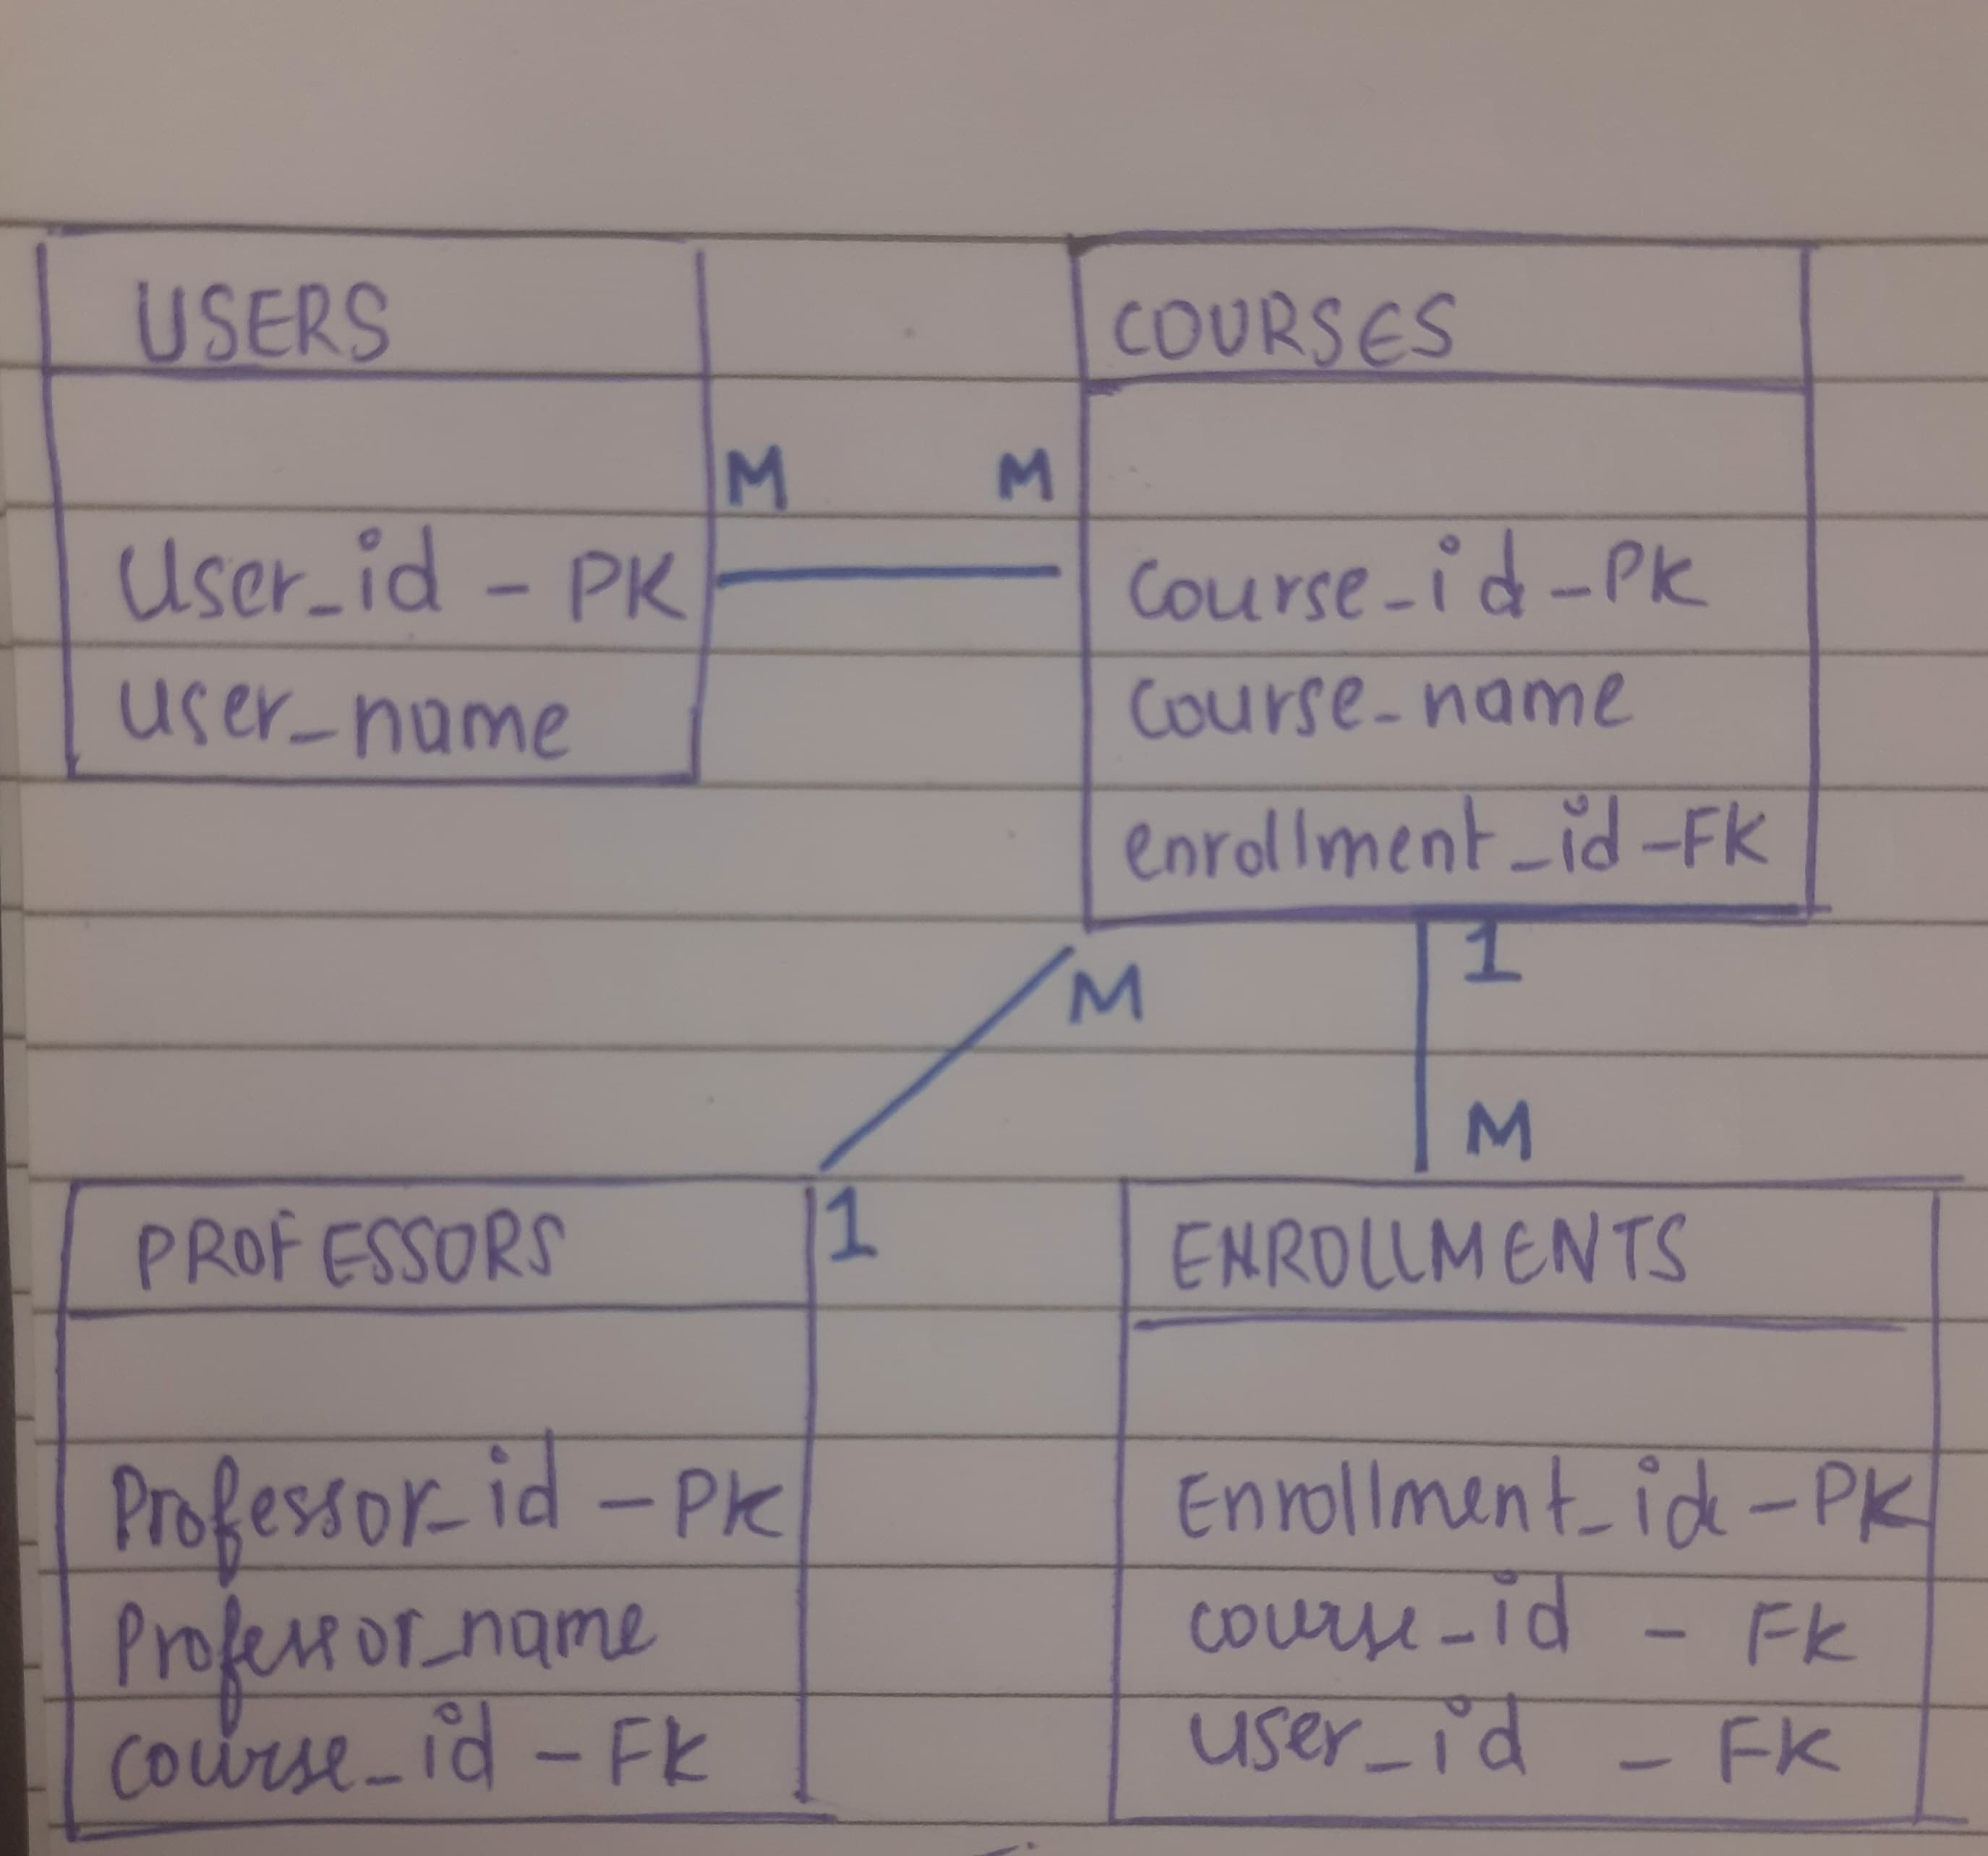 USERS
User_id - PK
user_name
M M
COURSES
course_id - PK
course_name
enrollment_id - FK
M
1
1
M
PROFESSORS
Professor_id - PK
Professor_name
course_id - FK
ENROLLMENTS
Enrollment_id - PK
course_id - FK
user_id - FK